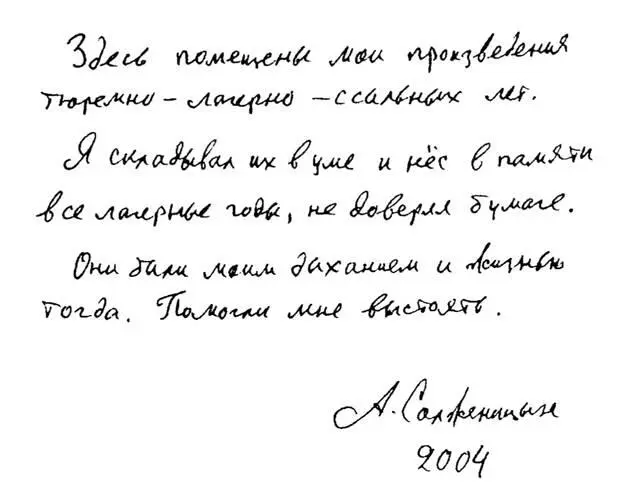 Здесь помещены мои произведения
тюремно-лагерно-ссыльных лет.
Я складывал их в уме и нёс в памяти
все лагерные годы, не доверяя бумаге.
Они были моим дыханием и жизнью
тогда. Помогли мне выстоять.
А. Солженицын
2004